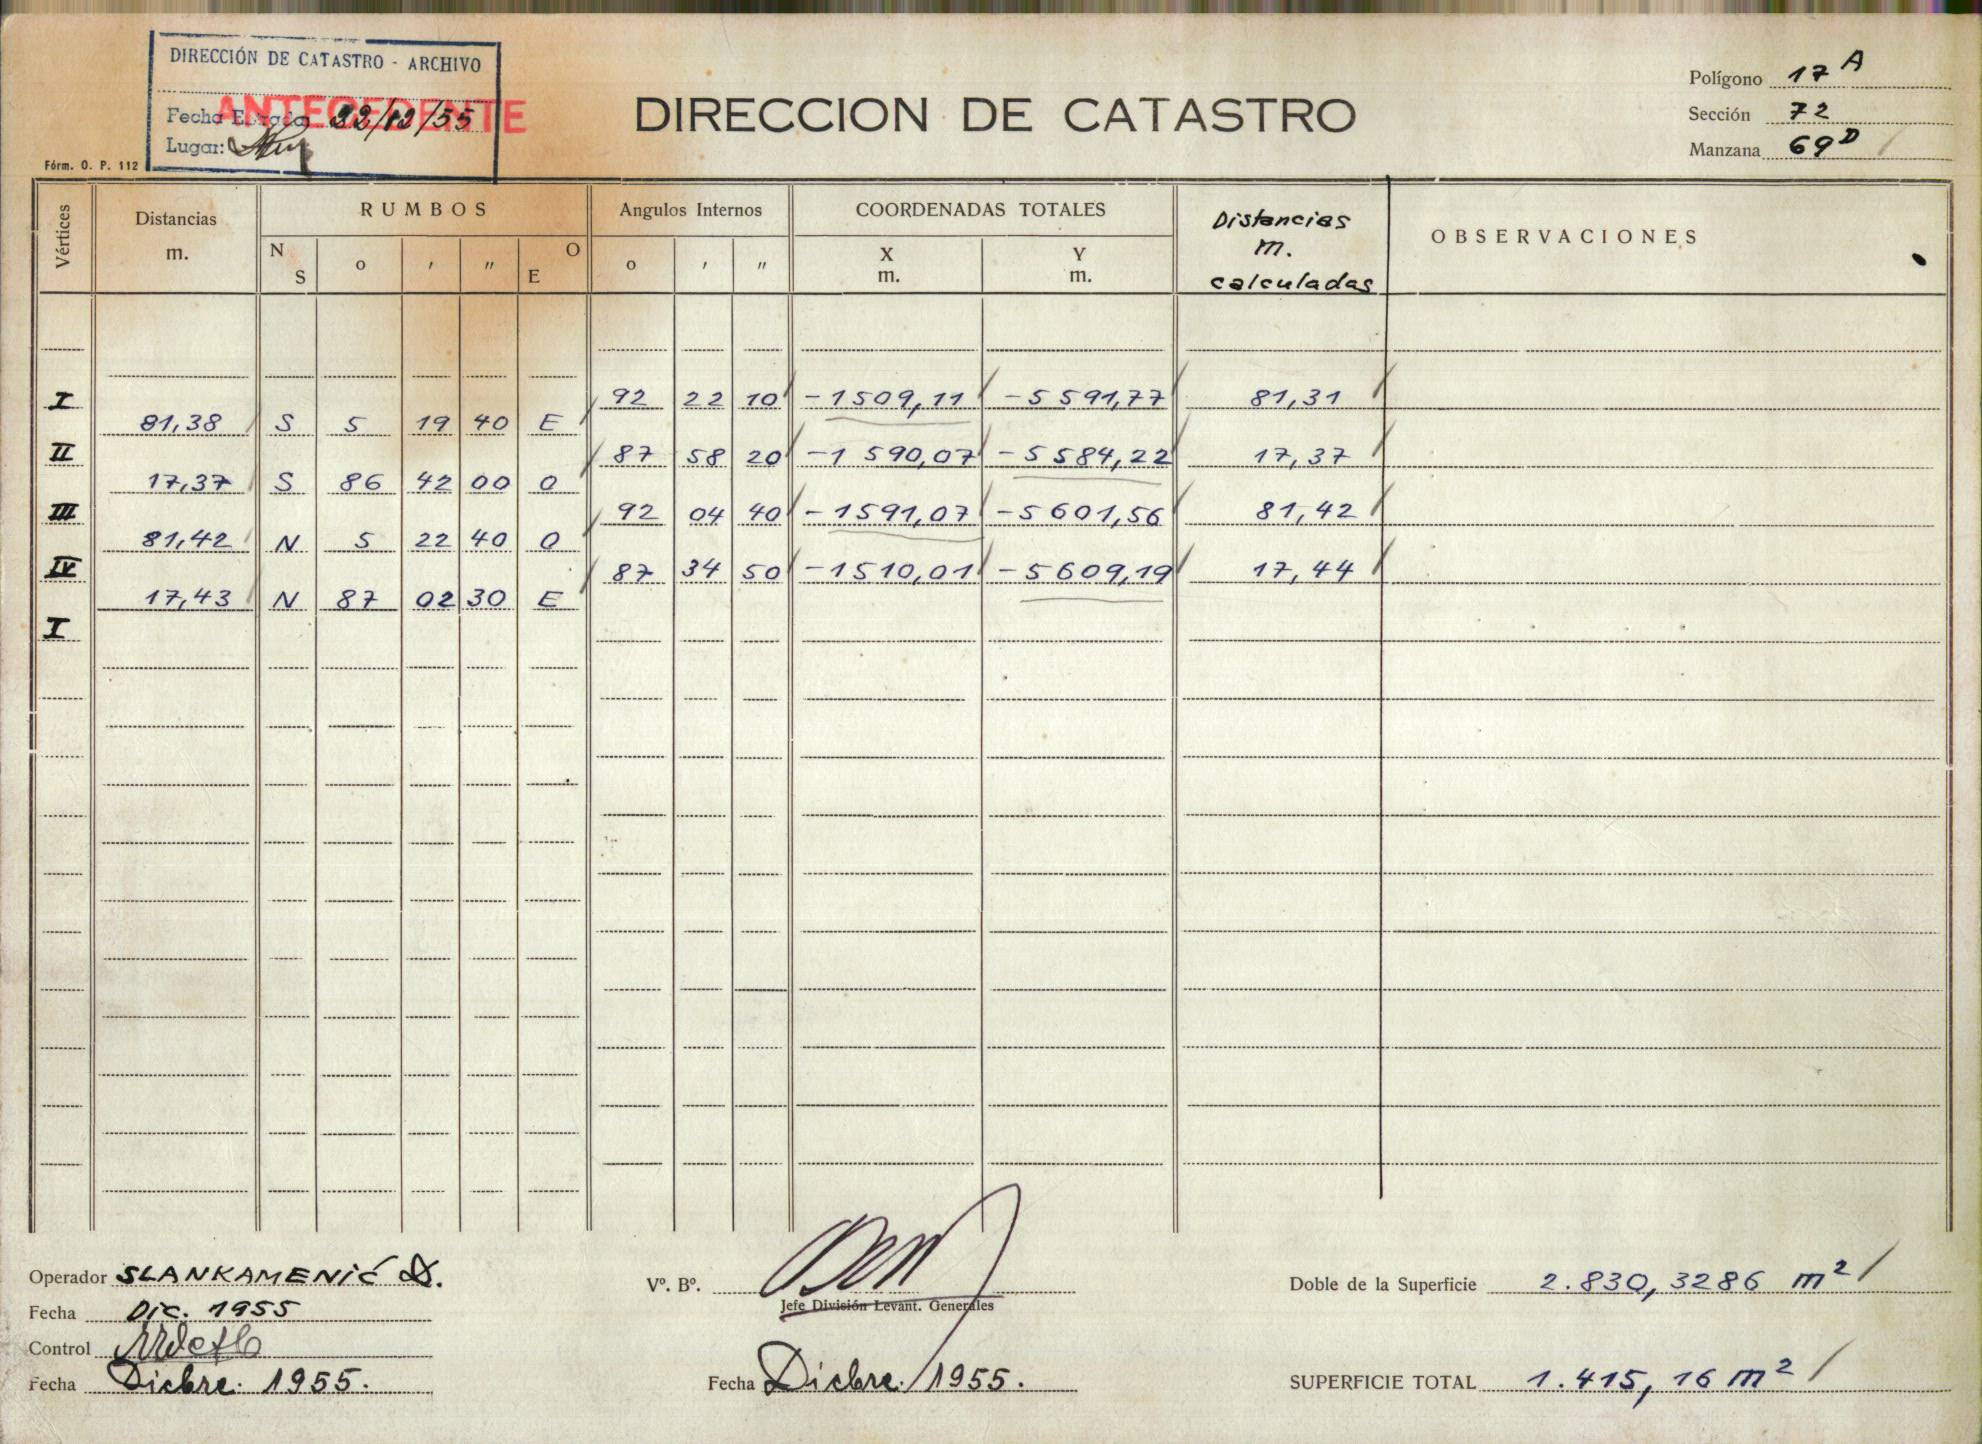 DIRECCIÓN DE CATASTRO - ARCHIVO
ANTECEDENTE
Fecha Entrada 22/12/55
Lugar:
Fórm. O. P. 112
DIRECCION DE CATASTRO
Polígono 17 A
Sección 72
Manzana 69 D
Vértices
Distancias m.
RUMBOS
N S o ' " O E
Angulos Internos
o ' "
COORDENADAS TOTALES
X m. Y m.
Distancias m. calculadas
OBSERVACIONES
I 92 22 10 -1509,11 -5591,77 81,31
81,38 S 5 19 40 E
II 87 58 20 -1590,07 -5584,22 17,37
17,37 S 86 42 00 O
III 92 04 40 -1591,07 -5601,56 81,42
81,42 N 5 22 40 O
IV 87 34 50 -1510,01 -5609,19 17,44
17,43 N 87 02 30 E
I
Operador SLANKAMENIĆ D.
Fecha Dic. 1955
Control
Fecha Dicbre. 1955.
Vº. Bº.
Jefe División Levant. Generales
Fecha Dicbre. 1955.
Doble de la Superficie 2.830,3286 m²
SUPERFICIE TOTAL 1.415,16 m²